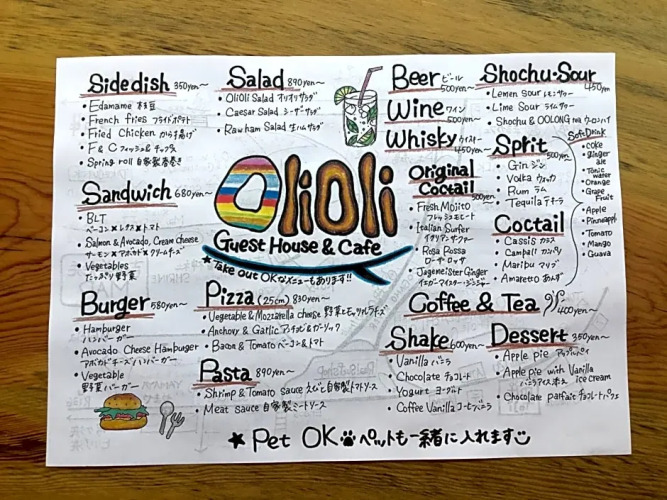 Sidedish 350yen~
• Edamame 枝豆
• French fries フライドポテト
• Fried Chicken から揚げ
• F & C フィッシュ&チップス
• Spring roll 自家製春巻き
Sandwich 680yen~
• BLT
ベーコン×レタス×トマト
• Salmon & Avocado, Cream cheese
サーモン×アボカド×クリームチーズ
• Vegetables
たっぷり野菜
Burger 580yen~
• Hamburger
ハンバーガー
• Avocado Cheese Hamburger
アボカドチーズハンバーガー
• Vegetable
野菜バーガー
Salad 890yen~
• OliOli Salad オリオリサラダ
• Caesar Salad シーザーサラダ
• Raw ham Salad 生ハムサラダ
OliOli
Guest House & Cafe
★Take out OKなメニューもあります!!
Pizza (25cm) 890yen~
• Vegetable & Mozzarella cheese 野菜とモッツァレラチーズ
• Anchovy & Garlic アンチョビ&ガーリック
• Bacon & Tomato ベーコン&トマト
Pasta 890yen~
• Shrimp & Tomato sauce えびと自家製トマトソース
• Meat sauce 自家製ミートソース
Beer ビール
500yen~
Wine ワイン
500yen~
Whisky ウイスキー
450yen~
Original
Coctail
500yen
• Fresh Mojito
フレッシュモヒート
• Italian Surfer
イタリアンサーファー
• Rosa Rossa
ローザ・ロッサ
• Jagemeister Ginger
イエガーマイスター・ジンジャー
Shochu・Sour
450yen
• Lemon Sour レモンサワー
• Lime Sour ライムサワー
• Shochu & OOLONG tea ウーロンハイ
Sprit
500yen
• Gin ジン
• Volka ウォッカ
• Rum ラム
• Tequila テキーラ
Coctail
• Cassis カシス
• Campali カンパリ
• Maribu マリブ
• Amaretto あんず
Soft Drink
• coke
• ginger
ale
• Tonic
water
• Orange
• Grape
Fruit
• Apple
• Pinneapple
• Tomato
• Mango
• Guava
Coffee & Tea
400yen~
Shake 600yen~
• Vanilla バニラ
• Chocolate チョコレート
• Yogurt ヨーグルト
• Coffee Vanilla コーヒーバニラ
Dessert 350yen~
• Apple pie アップルパイ
• Apple pie with Vanilla
バニラアイス添え ice cream
• Chocolate parfait チョコレートパフェ
★ Pet OK ペットも一緒に入れます